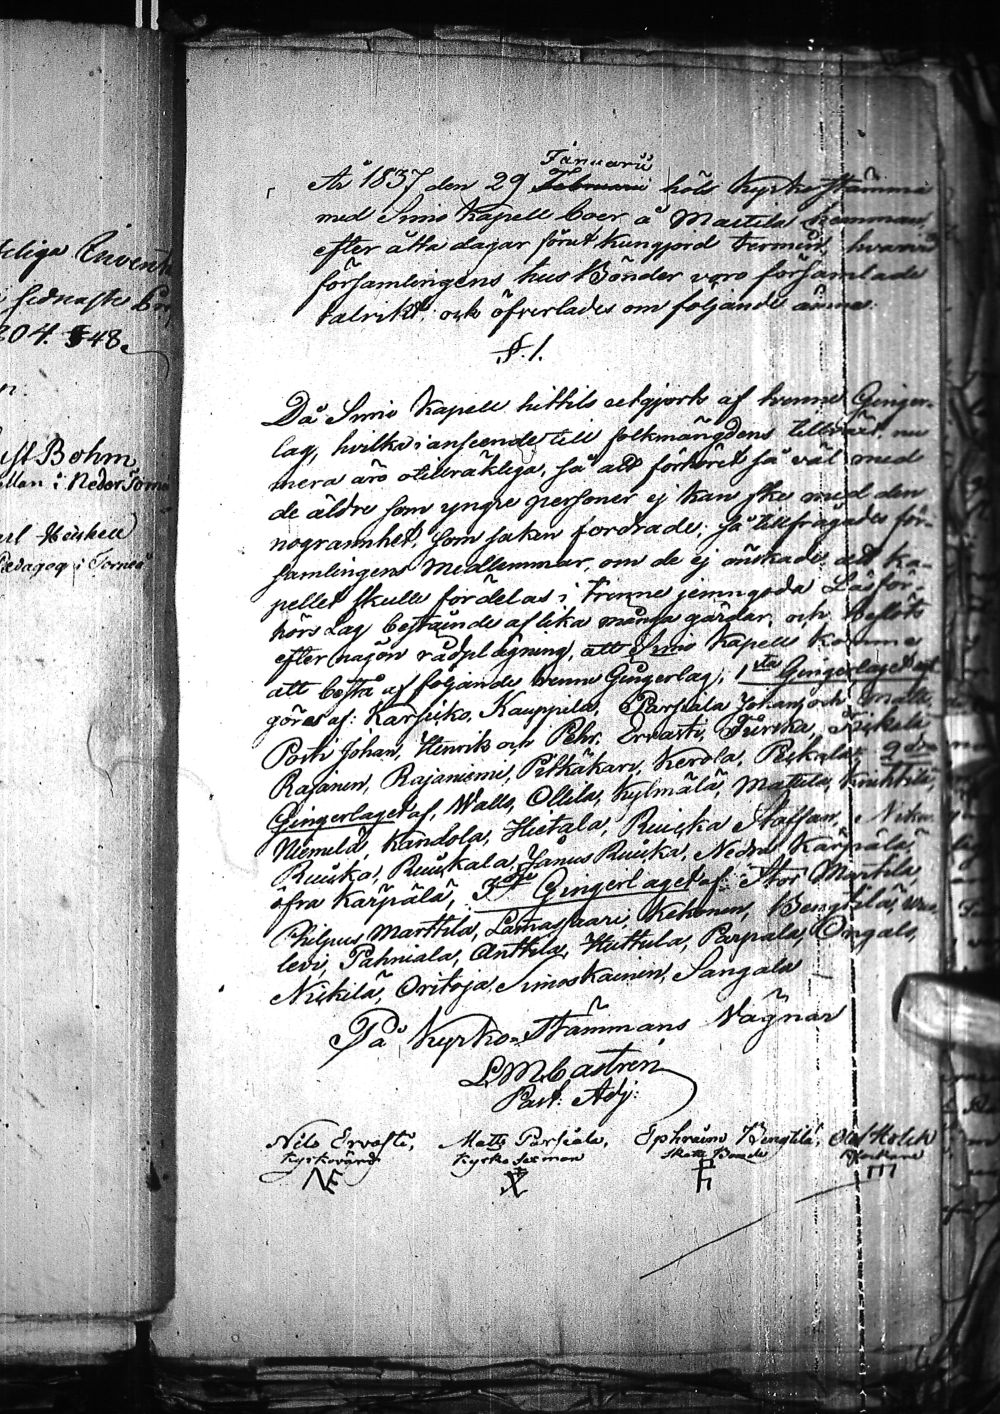 kliga Invent
sednaste
304. § 48.
n.
ust Bohm
ellan i Neder Torne
Pædagog i Torneå
Januarii
År 1837 den 29 Februarii hölt Kyrko stämma
med Simo Kapell boer å Mattila hemman,
efter åtta dagar förut kungjord termin, hvarvid
församlingens hus Bönder voro församlade
talrikt, och öfverlades om följande ämne.
§. 1.
Då Simo Kapell hittils utgjorts af tvenne Ginger-
lag, hvilka i anseende till folkmängdens tillväxt, nu
mera äro otillräkliga, så att förhöret så väl med
de äldre som yngre personer ej kan ske med den
nogrannhet, som saken fordrade; så tillfrågades för-
samlingens Medlemmar, om de ej önskade, att Ka-
pellet skulle fördelas i trenne jemngoda Läsför-
hörs Lag bestående af lika många gårdar, och beslöts
efter någon rådplägning, att Simo Kapell komme
att bestå af följande trenne Gingerlag; 1sta Gingerlaget ut
göres af: Karsiko, Kauppila, Parsiala Johan och Matts,
Posti Johan, Henrik och Pehr, Ervasti, Tiurika,
Rajanen, Rajaniemi, Pitkäkari, Kerola, Piskala; 2dra
Gingerlaget af, Walls, Ollila, Kylmälä, Mattila, Kruhtila,
Niemelä, Kandola, Hietala, Ruiska Staffan,
Ruiska, Ruiskala, Jånus Ruiska, Nedra Karpälä,
öfra Kärpälä, 3dje Gingerlaget af: Stor Marttila,
Philpus Marttila, Lamassaari, Kekonen, Bengtilä,
levi, Pahniala, Anttila, Huttula, Parpala, Ongals,
Nikilä, Oritoja, Simoskainen, Sangala
På Kyrko-Stämmans Vägnar
L.M. Castrén
Past: Adj:
Nils Ervasti, Matts Parsiala, Ephraim Bengtilä, Olof Holck
Kyrkovärd Kyrko Sexman Skatte Bonde Klockare
NE